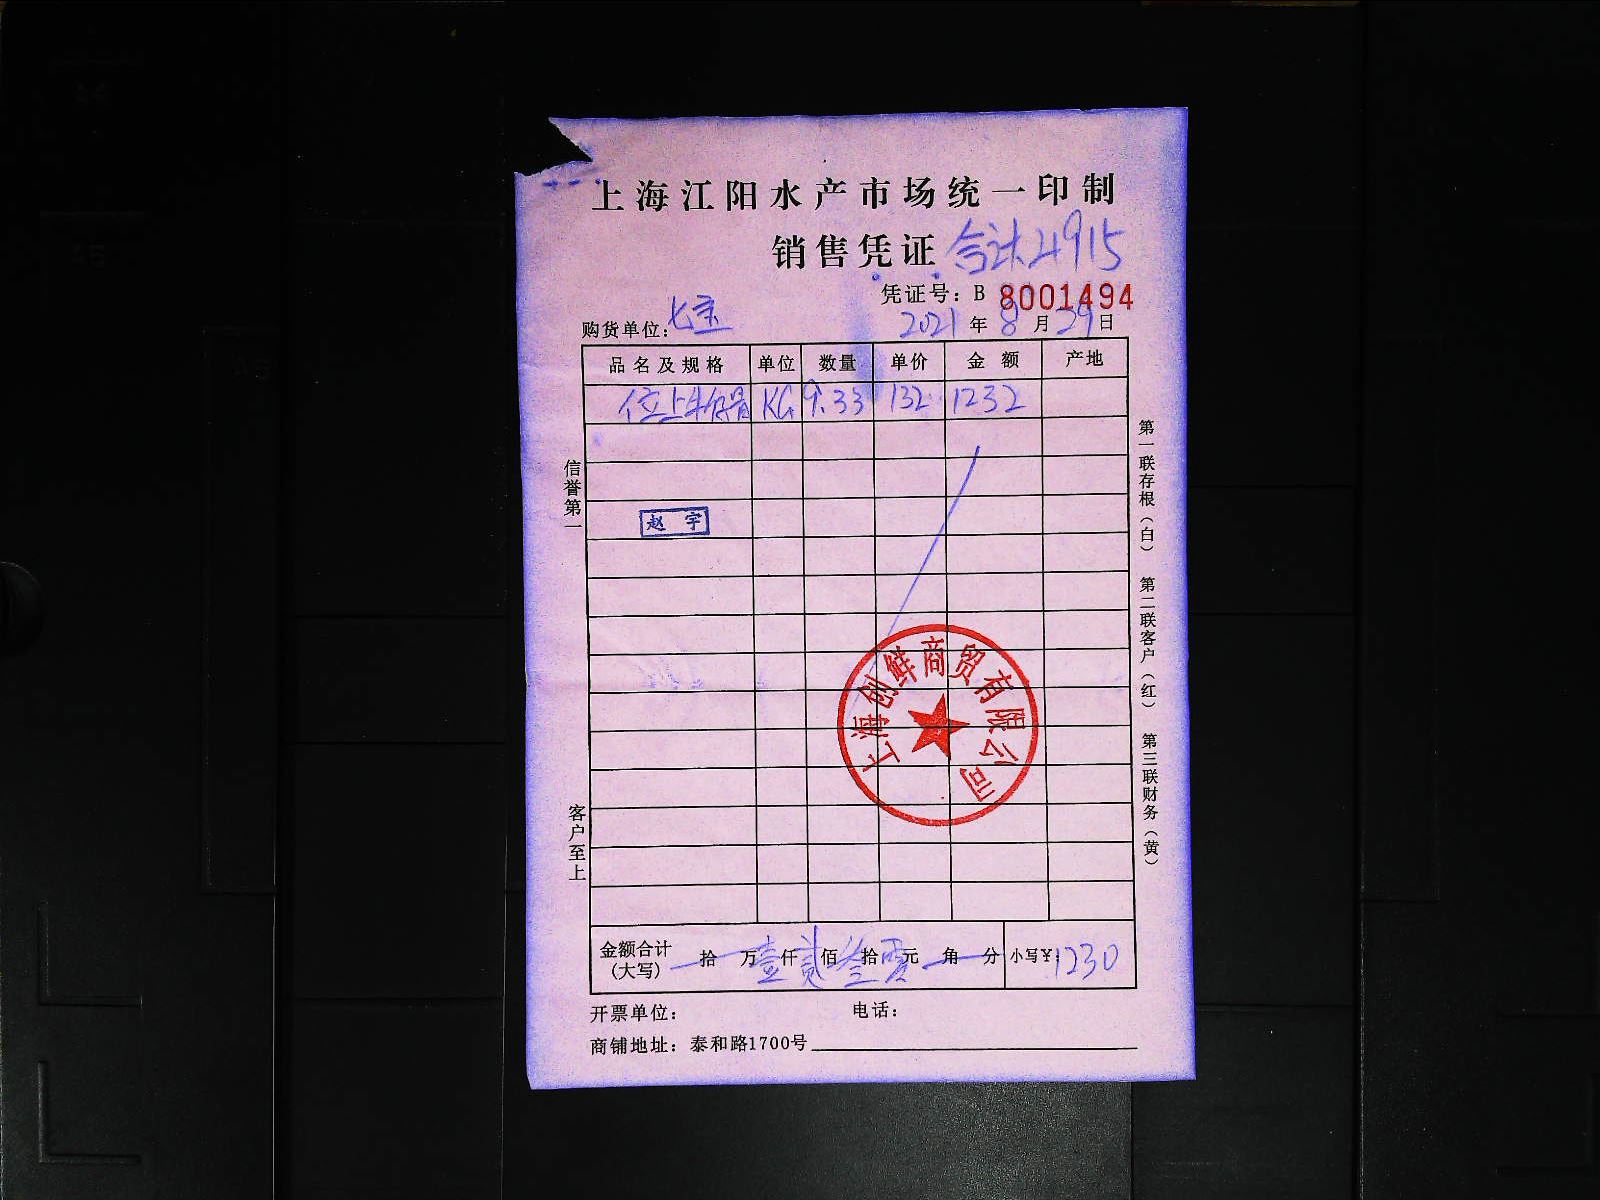 上海江阳水产市场统一印制
销售凭证 合计4915
凭证号：B 8001494
购货单位：七宝 2021 年 8 月 29 日
品名及规格 单位 数量 单价 金额 产地
KG 9.33 132 1232
赵宇
上海创鲜商贸有限公司
金额合计(大写) 拾 万 壹 仟 贰 佰 叁 拾 零 元 角 分 小写¥：1230
开票单位： 电话：
商铺地址：泰和路1700号
信誉第一
客户至上
第一联存根（白） 第二联客户（红） 第三联财务（黄）